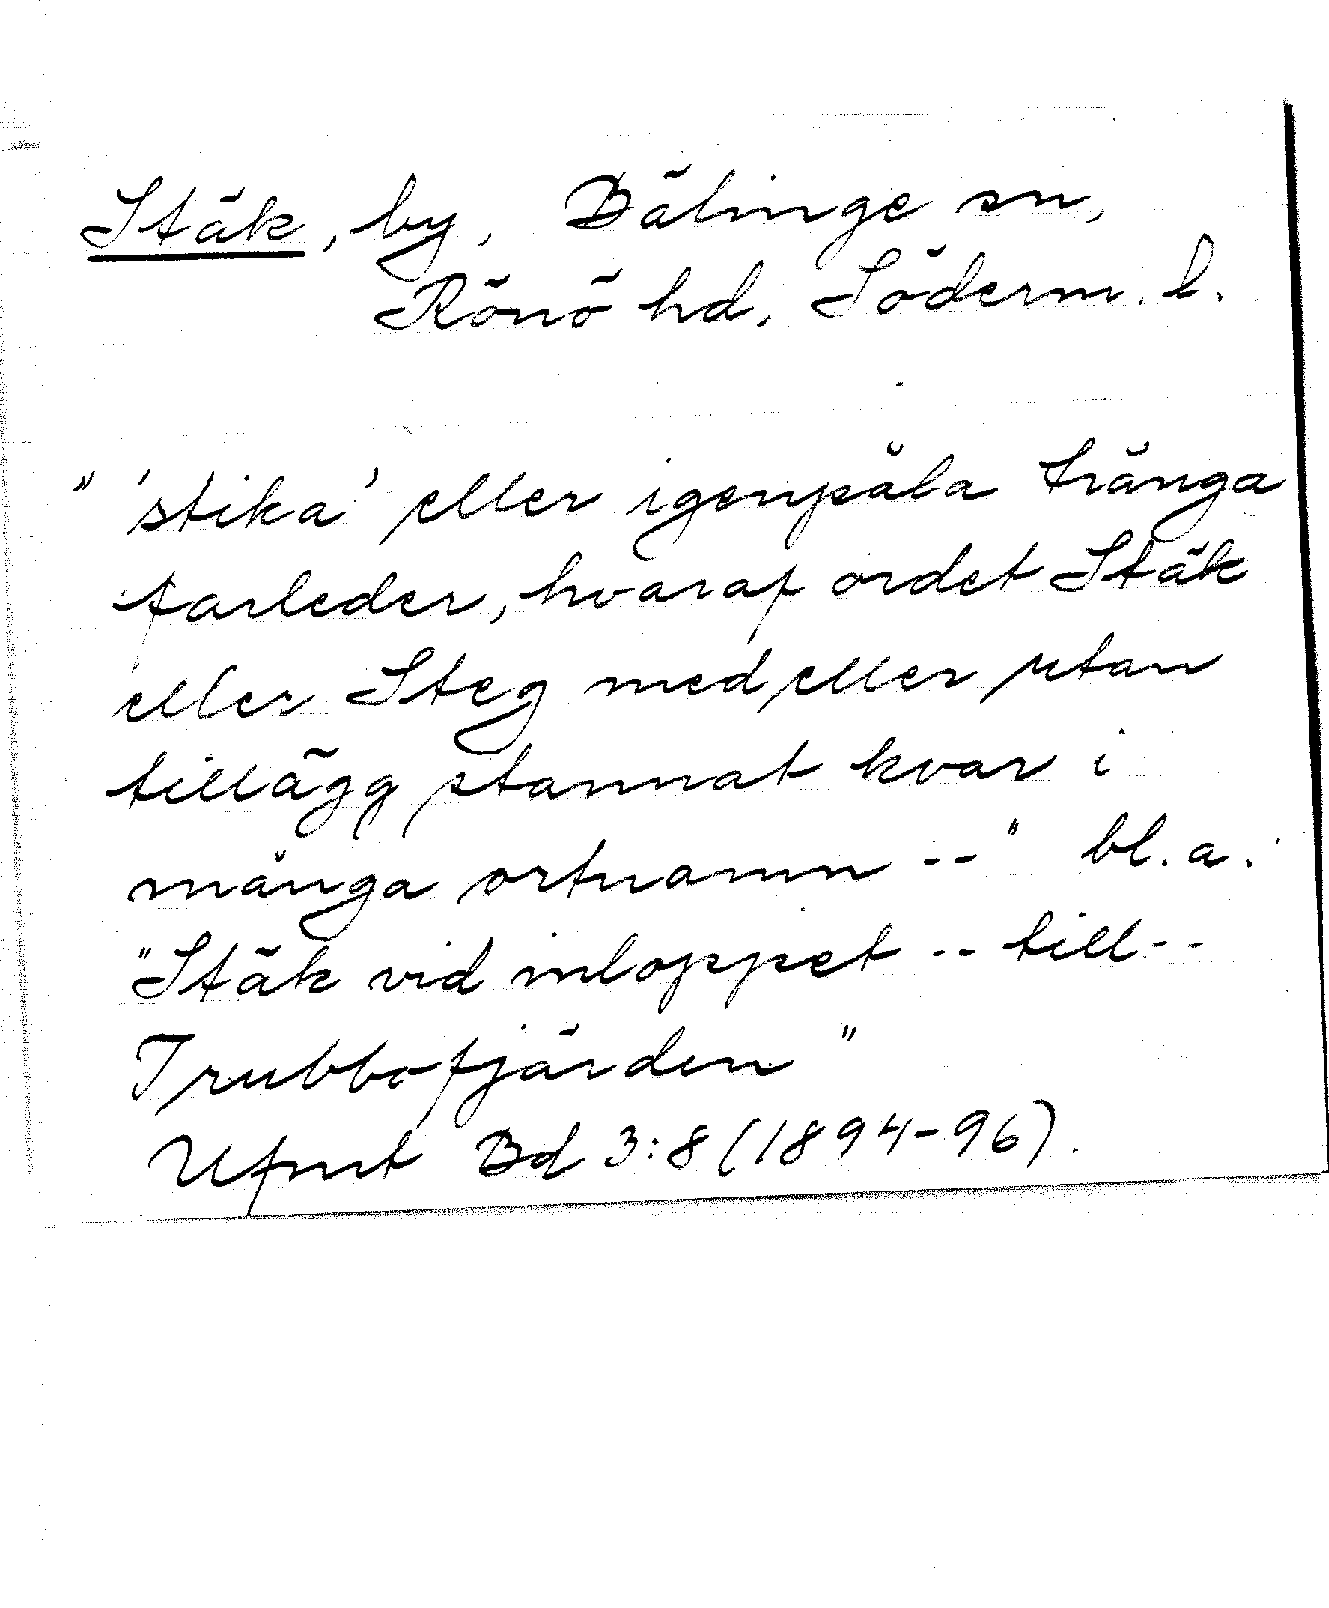 Stäk, by, Bälinge sn,
Rönö hd, Söderm. l.
" 'stika' eller igenpåla trånga
farleder, hvaraf ordet Stäk
eller Steg med eller utan
tillägg stannat kvar i
många ortnamn -- " bl. a.
"Stäk vid inloppet -- till --
Trubbofjärden "
Ufmt Bd 3:8 (1894-96).